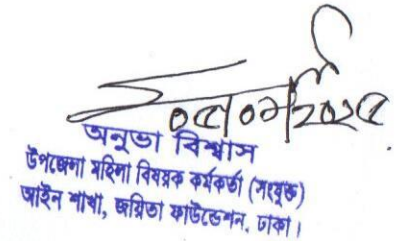 ০৫/০৮/২০২৫
অনুভা বিশ্বাস
উপজেলা মহিলা বিষয়ক কর্মকর্তা (সংযুক্ত)
আইন শাখা, জয়িতা ফাউন্ডেশন, ঢাকা।